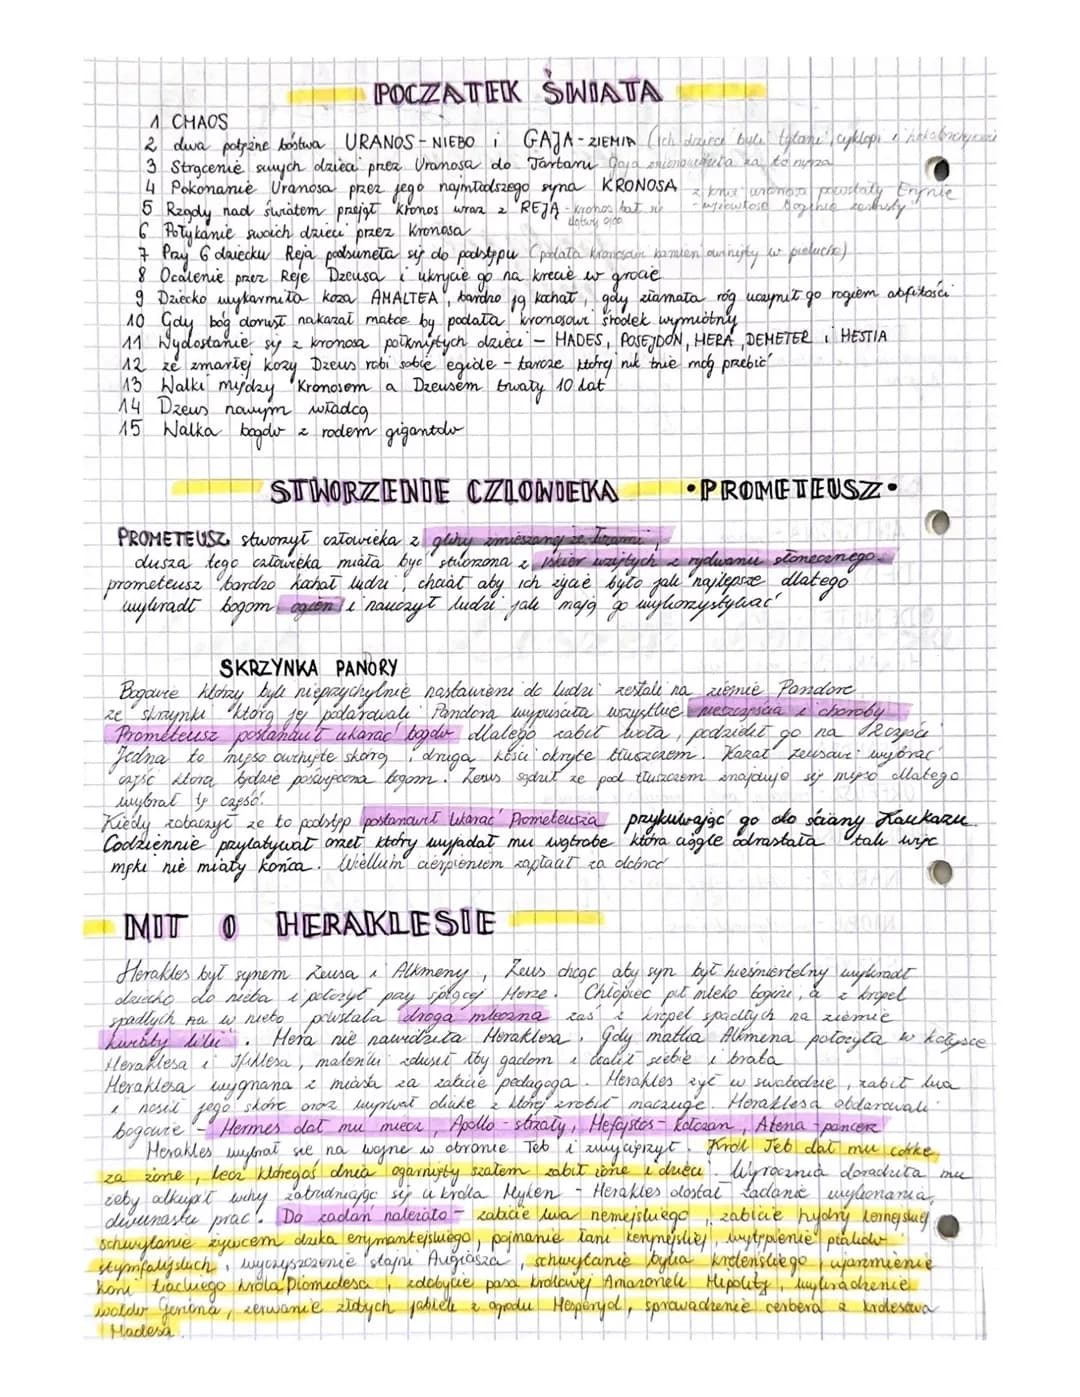 POCZATEK ŚWIATA
1 CHAOS
2 dwa potężne bóstwa URANOS - NIEBO i GAJA - ZIEMIA (ich dzieci byli tytani, cyklopi i
3 Strącenie swych dzieci przez Uranosa do Tartaru Gaja znienawidziła za to męża
4 Pokonanie Uranosa przez jego najmłodszego syna KRONOSA z krwi uranosa powstały Erynie
5 Rządy nad światem przejął Kronos wraz z REJĄ - kronos bał się - bóginie zemsty
6 Połykanie swoich dzieci przez Kronosa
7 Przy 6 dziecku Reja posunęła się do podstępu (podała kronosowi kamień owinięty w pieluchę)
8 Ocalenie przez Reję Dzeusa i ukrycie go na krecie w grocie
9 Dziecko wykarmiła koza AMALTEA, bardzo ją kochał, gdy złamała róg uczynił go rogiem obfitości
10 Gdy bóg dorósł nakazał matce by podała kronosowi środek wymiotny
11 Wydostanie się z kronosa połkniętych dzieci - HADES, POSEJDON, HERA, DEMETER i HESTIA
12 ze zmarłej kozy Dzeus robi sobie egidę - tarcze której nik nie móg przebić
13 Walki między Kronosem a Dzeusem trwały 10 lat
14 Dzeus nowym władcą
15 Walka bogów z rodem gigantów
STWORZENIE CZLOWIEKA • PROMETEUSZ •
PROMETEUSZ stworzył człowieka z gliny zmieszanej ze łzami,
dusza tego człowieka miała być stworzona z iskier wziętych z rydwanu słonecznego.
prometeusz bardzo kochał ludzi, chciał aby ich życie było jak najlepsze dlatego
wykradł bogom ogień i nauczył ludzi jak mają go wykorzystywać
SKRZYNKA PANORY
Bogowie którzy byli nieprzychylnie nastawieni do ludzi zesłali na ziemie Pandorę
ze skrzynki którą jej podarowali Pandora wypuściła wszystkie nieszczęścia i choroby
Prometeusz postanowił ukarać bogów dlatego zabił woła, podzielił go na 2 części
Jedna to mięso owinięte skórą, druga kości okryte tłuszczem. Kazał Zeusowi wybrać
część którą będzie poświęcona bogom. Zeus sądził ze pod tłuszczem znajduje się mięso dlatego
wybrał tę część.
Kiedy zobaczył ze to podstęp postanowił ukarać Prometeusza przykuwając go do ściany Kaukazu.
Codziennie przylatywał orzeł który wyjadał mu wątrobe która ciągle odrastała tak więc
męki nie miały końca. Wielkim cierpieniem zapłacił za dobroć
MIT O HERAKLESIE
Herakles był synem Zeusa i Alkmeny, Zeus chcąc aby syn był nieśmiertelny wykradł
dziecko do nieba i położył przy śpiącej Herze. Chłopiec pił mleko bogini, a z kropel
spadłych na w niebo powstała droga mleczna zaś z kropel spadłych na ziemie
kwiaty lilii. Hera nie nawidziła Heraklesa. Gdy matka Alkmena położyła w kołysce
Heraklesa i Ifiklesa, malenki zdusił łby gadom i ocalił siebie i brata
Heraklesa wygnana z miasta za zabicie pedagoga. Herakles żył w swobodzie, zabił lwa
i nosił jego skórę oraz wyrwał oliwkę z której zrobił maczugę. Heraklesa obdarowali
bogowie - Hermes dał mu miecz, Apollo - strzały, Hefajstos - kołczan, Atena - pancerz
Herakles wybrał się na wojnę w obronie Teb i zwyciężył. Król Teb dał mu córkę
za żonę, lecz któregoś dnia ogarnięty szałem zabił żonę i dzieci. Wyrocznia doradziła mu
żeby odkupił winy zatrudniając się u króla Myken - Herakles dostał zadanie wykonania
dwunastu prac. Do zadań należało - zabicie lwa nemejskiego, zabicie hydry lernejskiej
schwytanie żywcem dzika erymantejskiego, pojmanie łani kerynejskiej, wytępienie ptaków
stymfalijskich, wyczyszczenie stajni Augiasza, schwytanie byka kreteńskiego, ujarzmienie
koni trackiego króla Diomedesa, zdobycie pasa królowej Amazonek Hipolity, wykradzenie
wołów Geriona, zerwanie złotych jabłek z ogrodu Hesperyd, sprowadzenie cerbera z królestwa
Hadesa.